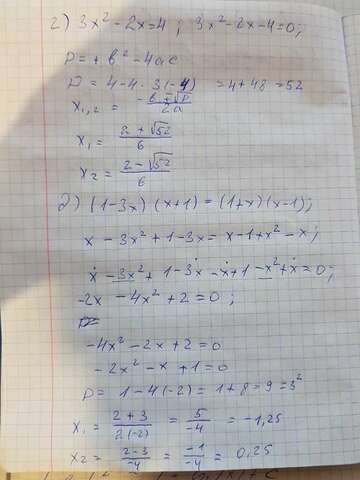 2) 3x² - 2x = 4 ; 3x² - 2x - 4 = 0;
D = + b² - 4ac
D = 4 - 4 · 3(-4) = 4 + 48 = 52
x₁,₂ = -b ± √D / 2a
x₁ = 2 + √52 / 6
x₂ = 2 - √52 / 6
д) (1-3x) (x+1) = (1+x)(x-1);
x - 3x² + 1 - 3x = x - 1 + x² - x;
x - 3x² + 1 - 3x - x + 1 - x² + x = 0;
-2x - 4x² + 2 = 0 ;
-4x² - 2x + 2 = 0
-2x² - x + 1 = 0
D = 1 - 4(-2) = 1 + 8 = 9 = 3²
x₁ = 2 + 3 / 2(-2) = 5 / -4 = -1,25
x₂ = 2 - 3 / -4 = -1 / -4 = 0,25